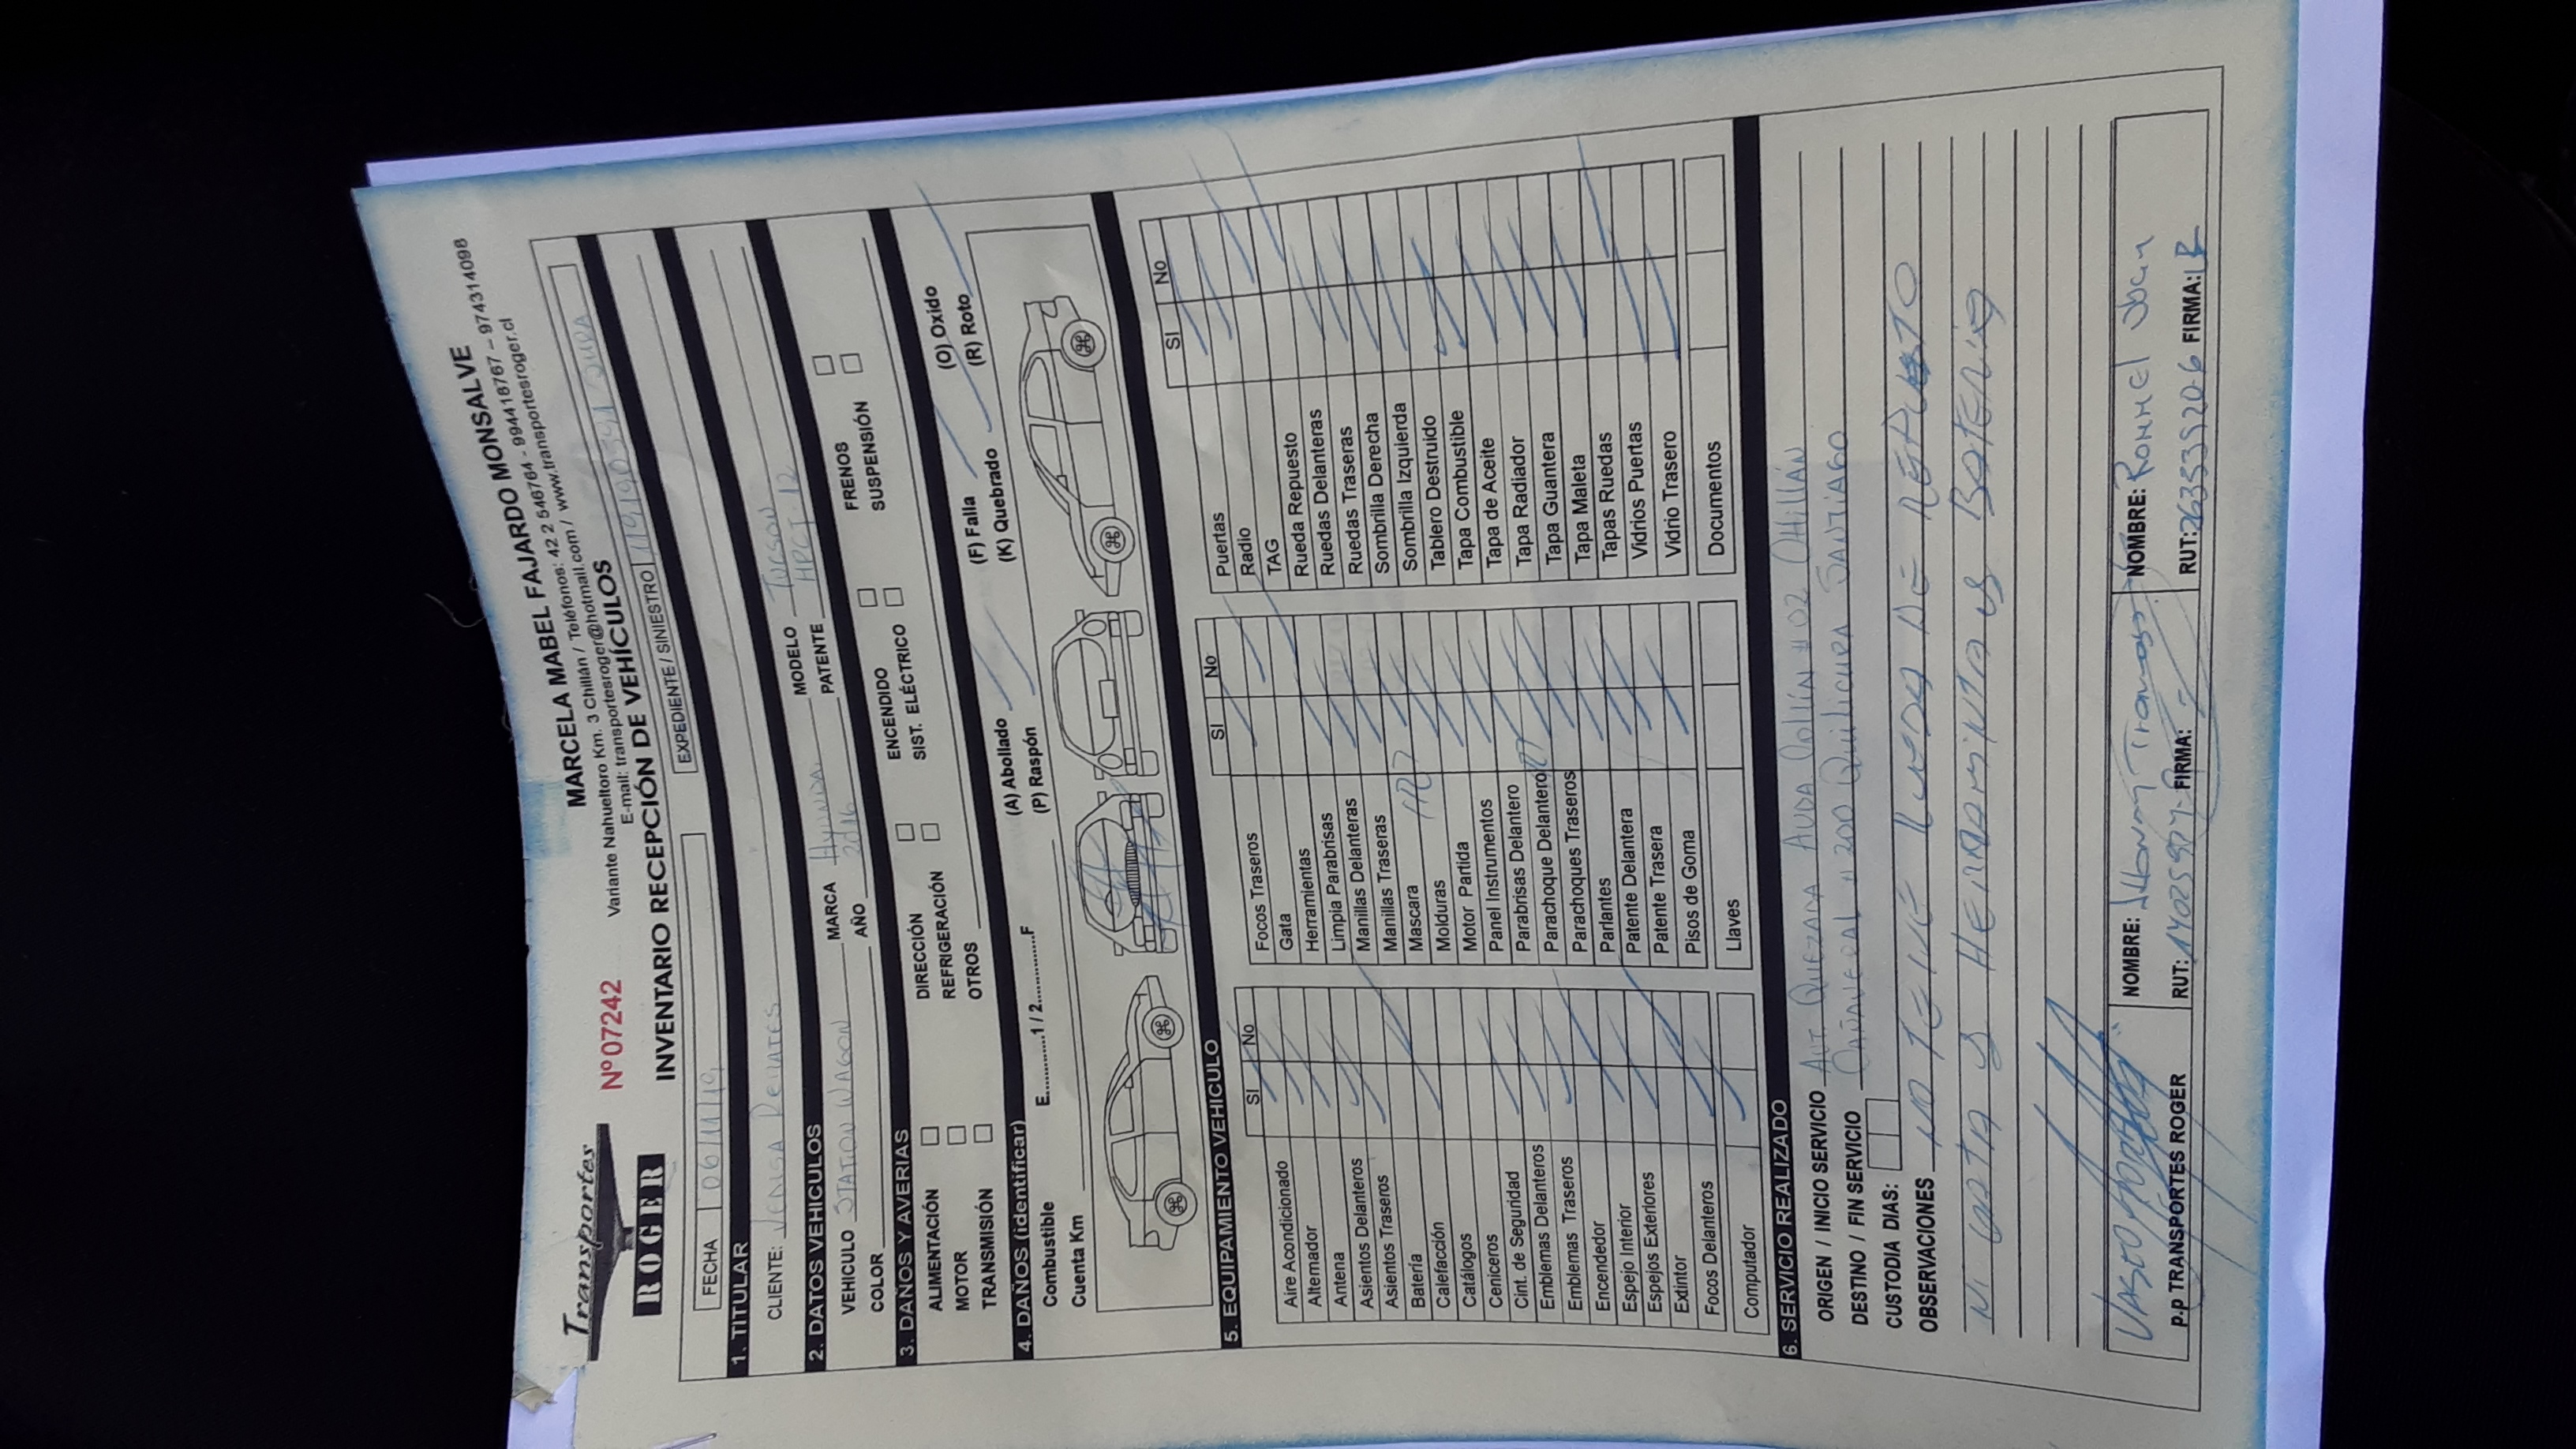 Transportes
ROGER
Nº 07242
MARCELA MABEL FAJARDO MONSALVE
Variante Nahueltoro Km. 3 Chillán / Teléfonos: 42 2 546764 - 994418767 – 974314098
E-mail: transportesroger@hotmail.com / www.transportesroger.cl
INVENTARIO RECEPCIÓN DE VEHÍCULOS
FECHA 06/11/19 EXPEDIENTE / SINIESTRO
1. TITULAR
CLIENTE:
2. DATOS VEHICULOS
VEHICULO STATION WAGON MARCA HYUNDAI MODELO TUCSON
COLOR AÑO 2016 PATENTE
3. DAÑOS Y AVERIAS
ALIMENTACIÓN DIRECCIÓN ENCENDIDO FRENOS
MOTOR REFRIGERACIÓN SIST. ELÉCTRICO SUSPENSIÓN
TRANSMISIÓN OTROS
4. DAÑOS (identificar)
Combustible E.............1 / 2.............F (A) Abollado (F) Falla (O) Oxido
Cuenta Km (P) Raspón (K) Quebrado (R) Roto
5. EQUIPAMIENTO VEHICULO
SI No
Aire Acondicionado
Alternador
Antena
Asientos Delanteros
Asientos Traseros
Batería
Calefacción
Catálogos
Ceniceros
Cint. de Seguridad
Emblemas Delanteros
Emblemas Traseros
Encendedor
Espejo Interior
Espejos Exteriores
Extintor
Focos Delanteros
Computador
SI No
Focos Traseros
Gata
Herramientas
Limpia Parabrisas
Manillas Delanteras
Manillas Traseras
Mascara
Molduras
Motor Partida
Panel Instrumentos
Parabrisas Delantero
Parachoque Delantero
Parachoques Traseros
Parlantes
Patente Delantera
Patente Trasera
Pisos de Goma
Llaves
SI No
Puertas
Radio
TAG
Rueda Repuesto
Ruedas Delanteras
Ruedas Traseras
Sombrilla Derecha
Sombrilla Izquierda
Tablero Destruido
Tapa Combustible
Tapa de Aceite
Tapa Radiador
Tapa Guantera
Tapa Maleta
Tapas Ruedas
Vidrios Puertas
Vidrio Trasero
Documentos
6. SERVICIO REALIZADO
ORIGEN / INICIO SERVICIO AUT. QUEZADA AVDA COLLÍN # 02 CHILLÁN
DESTINO / FIN SERVICIO CAÑAVERAL # 200 QUILICURA SANTIAGO
CUSTODIA DIAS:
OBSERVACIONES NO TIENE RUEDA DE REPUESTO
NI GATA y HERRAMIENTA y BATERIA
p.p TRANSPORTES ROGER
NOMBRE:
RUT: FIRMA:
NOMBRE: Rommel
RUT: FIRMA: